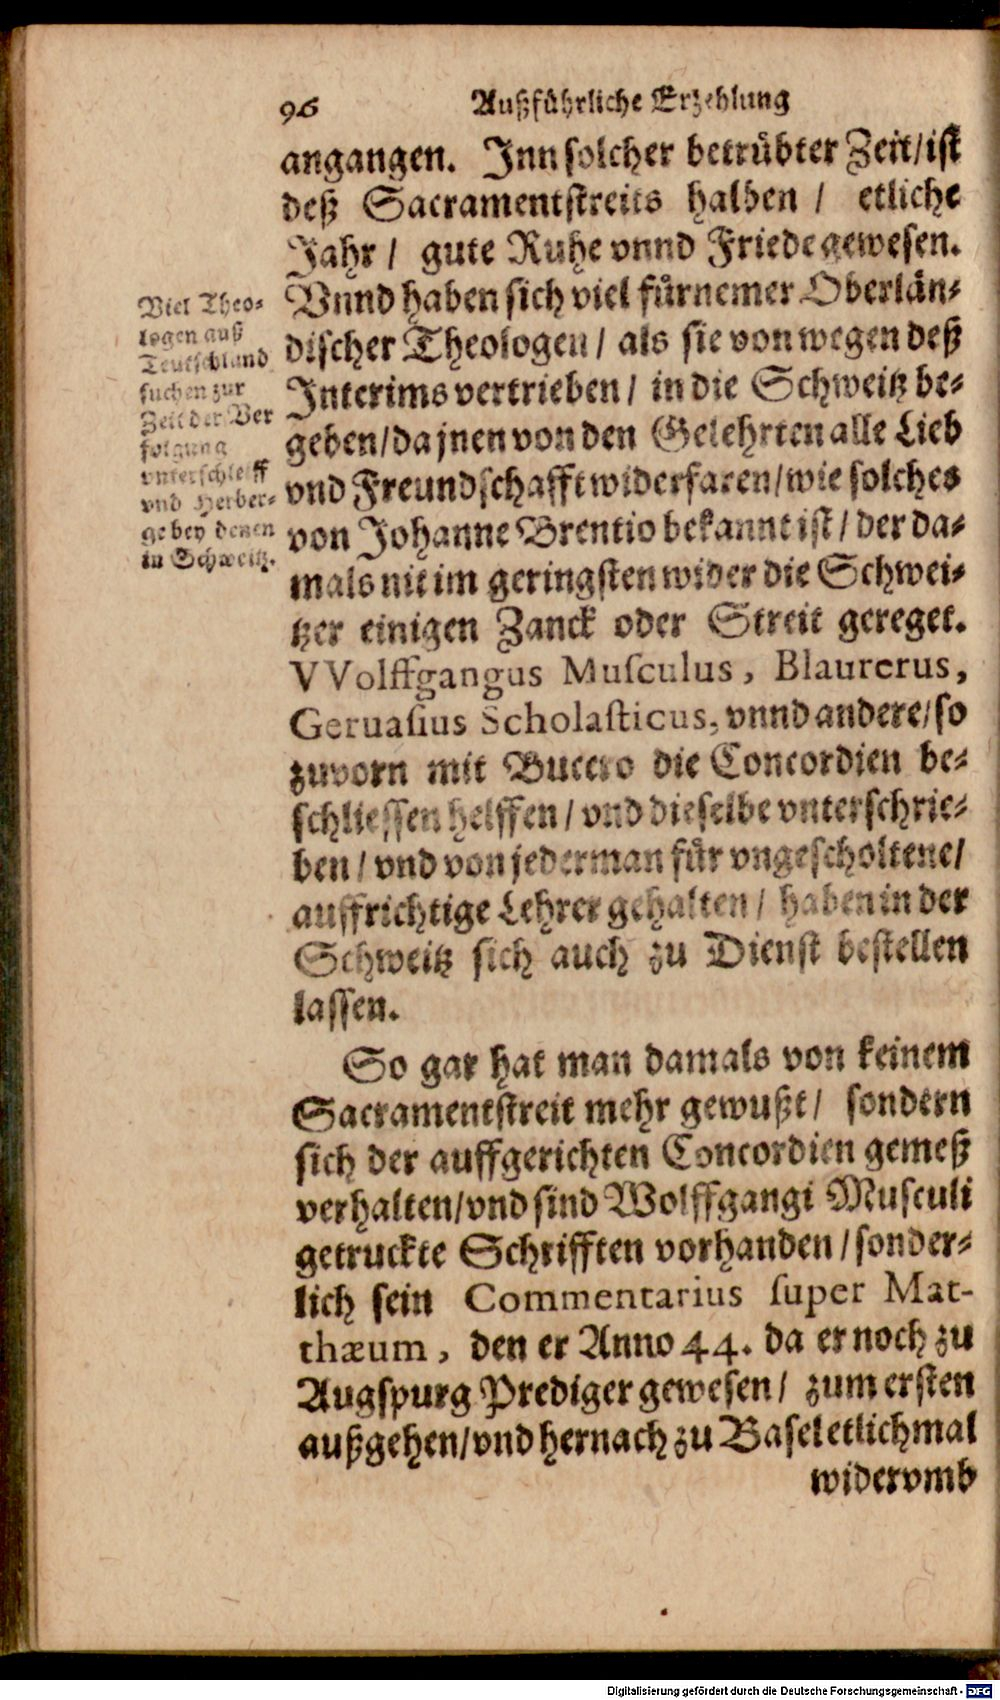 96 Außführliche Erzehlung
angangen. Jnn solcher betrübter Zeit/ ist
deß Sacramentstreits halben / etliche
Jahr / gute Ruhe vnnd Friede gewesen.
Vnnd haben sich viel fürnemer Oberlän-
discher Theologen / als sie von wegen deß
Jnterims vertrieben / in die Schweitz be-
geben/ da jnen von den Gelehrten alle Lieb
vnd Freundschafft widerfaren/ wie solches
von Johanne Brentio bekannt ist / der da-
mals nit im geringsten wider die Schwei-
tzer einigen Zanck oder Streit gereget.
VVolffgangus Musculus, Blaurerus,
Geruasius Scholasticus, vnnd andere/ so
zuvorn mit Bucero die Concordien be-
schliessen helffen / vnd dieselbe vnterschrie-
ben / vnd von jederman für vngescholtene/
auffrichtige Lehrer gehalten / haben in der
Schweitz sich auch zu Dienst bestellen
lassen.
So gar hat man damals von keinem
Sacramentstreit mehr gewußt / sondern
sich der auffgerichten Concordien gemeß
verhalten/ vnd sind Wolffgangi Musculi
getruckte Schrifften vorhanden / sonder-
lich sein Commentarius super Mat-
thæum, den er Anno 44. da er noch zu
Augspurg Prediger gewesen / zum ersten
außgehen/ vnd hernach zu Basel etlichmal
widervmb
Viel Theo-
logen auß
Teutschland
suchen zur
Zeit der Ver
folgung
vnterschleiff
vnd Herber-
ge bey denen
in Schweitz.
Digitalisierung gefördert durch die Deutsche Forschungsgemeinschaft - DFG